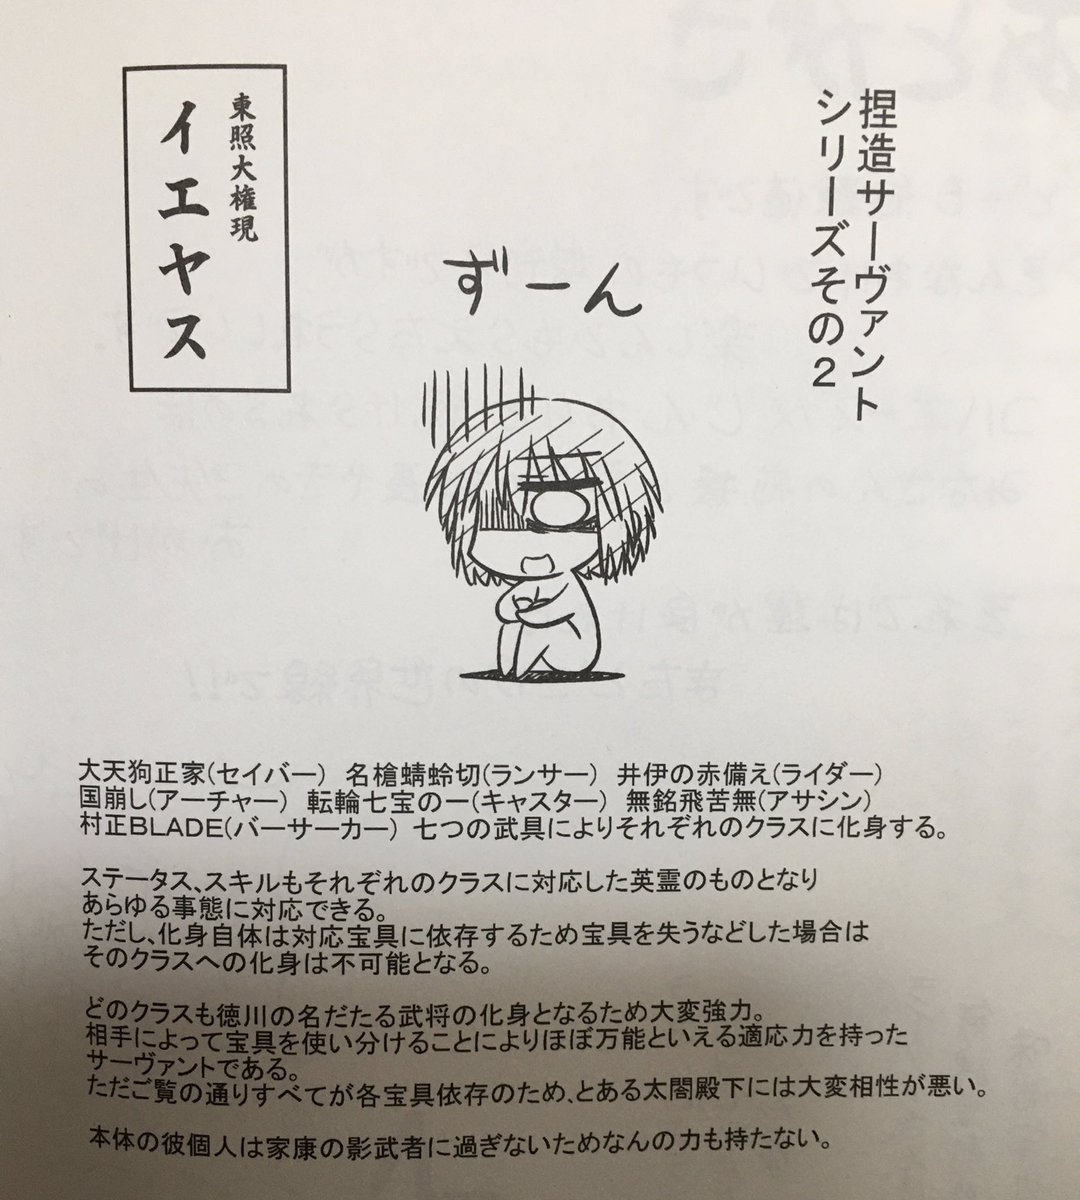 捏造サーヴァント
シリーズその2
東照大権現
イエヤス
ずーん
大天狗正家(セイバー) 名槍蜻蛉切(ランサー) 井伊の赤備え(ライダー)
国崩し(アーチャー) 転輪七宝の一(キャスター) 無銘飛苦無(アサシン)
村正BLADE(バーサーカー) 七つの武具によりそれぞれのクラスに化身する。
ステータス、スキルもそれぞれのクラスに対応した英霊のものとなり
あらゆる事態に対応できる。
ただし、化身自体は対応宝具に依存するため宝具を失うなどした場合は
そのクラスへの化身は不可能となる。
どのクラスも徳川の名だたる武将の化身となるため大変強力。
相手によって宝具を使い分けることによりほぼ万能といえる適応力を持った
サーヴァントである。
ただご覧の通りすべてが各宝具依存のため、とある太閤殿下には大変相性が悪い。
本体の彼個人は家康の影武者に過ぎないためなんの力も持たない。